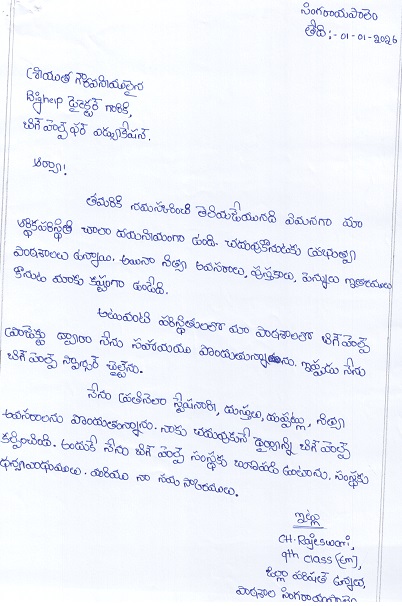 సింగరాయపాలెం
తేది:- 01-01-2026
శ్రీయుత గౌరవనీయులైన
Bighelp డైరెక్టర్ గారికి,
బిగ్ హెల్ప్ ఫర్ ఎడ్యుకేషన్.
ఆర్యా!
తమరికి నమస్కరించి తెలియజేయునది ఏమనగా మా
ఆర్థికపరిస్థితి చాలా దయనీయంగా ఉంది. చదువుకొనుటకు ప్రభుత్వ
పాఠశాలలు ఉన్నాయి. అయినా నిత్యా అవసరాలు, పుస్తకాలు, పెన్నులు ఇతరములు
కొనుట మాకు కష్టంగా ఉండేది.
అటువంటి పరిస్థితులలో మా పాఠశాలలో బిగ్ హెల్ప్
ప్రాజెక్టు ద్వారా నేను సహాయము పొందుతున్నాను. ఇప్పుడు నేను
బిగ్ హెల్ప్ స్పాన్సర్ చైల్డ్‌ను.
నేను ప్రతినెలా స్టేషనరీ, దుస్తులు, దుప్పట్లు, నిత్యా
అవసరాలను పొందుతున్నాను. నాకు చదువుకునే ధైర్యాన్ని బిగ్ హెల్ప్
కల్పించింది. అందుకే నేను బిగ్ హెల్ప్ సంస్థకు ఋణపడి ఉంటాను. సంస్థకు
ధన్యవాదములు. మరియు నా నమస్కారములు.
ఇట్లు
CH. Rajeswari,
9th class (EM),
జిల్లా పరిషత్ ఉన్నత,
పాఠశాల సింగరాయపాలెం